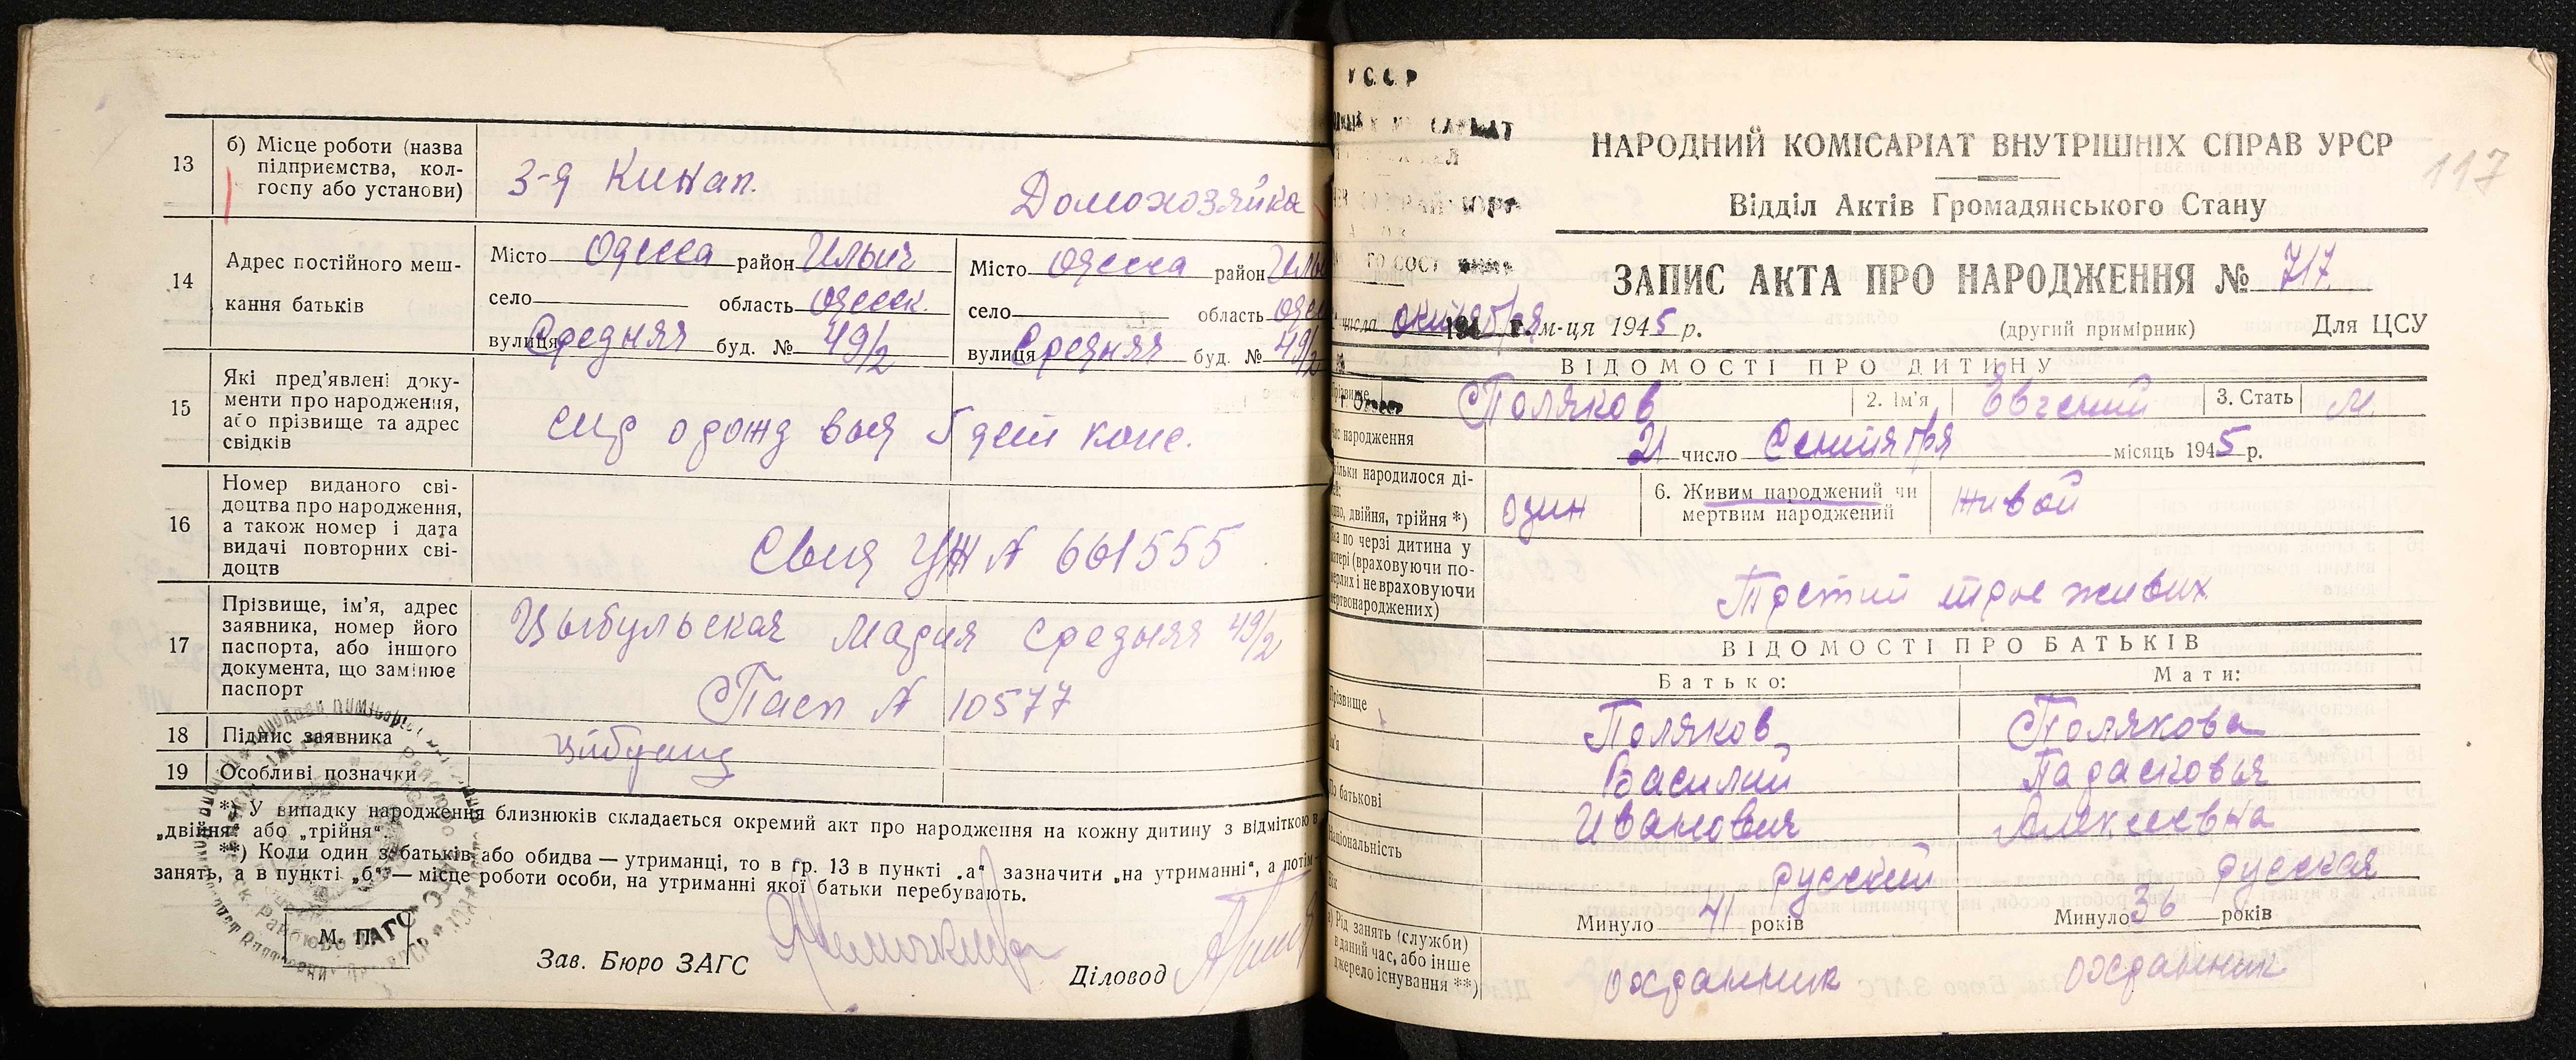 13
б) Місце роботи (назва
підприємства, кол-
госпу або установи)
3-я Кинап.
Домохозяйка
14
Адрес постійного меш-
кання батьків
Місто Одесса район Ильич
село область Одесск.
вулиця Средняя буд. № 49/2
Місто Одесса район Иль
село область Одес
вулиця Средняя буд. № 49/2
15
Які пред'явлені доку-
менти про народження,
або прізвище та адрес
свідків
5 конс.
16
Номер виданого сві-
доцтва про народження,
а також номер і дата
видачі повторних сві-
доцтв
УЖ № 661555
17
Прізвище, ім'я, адрес
заявника, номер його
паспорта, або іншого
документа, що замінює
паспорт
Цыбульская Мария Средняя 49/2
Пасп № 10577
18
Підпис заявника
19
Особливі позначки
*) У випадку народження близнюків складається окремий акт про народження на кожну дитину з відміткою в
„двійня" або „трійня".
**) Коли один з батьків або обидва — утриманці, то в гр. 13 в пункті „а" зазначити „на утриманні", а потім
занять, а в пункті „б" — місце роботи особи, на утриманні якої батьки перебувають.
М. П.
ЗАГС
Зав. Бюро ЗАГС
Діловод
УССР
117
НАРОДНИЙ КОМІСАРІАТ ВНУТРІШНІХ СПРАВ УРСР
Відділ Актів Громадянського Стану
ЗАПИС АКТА ПРО НАРОДЖЕННЯ № 717
числа октября м-ця 1945 р.
(другий примірник)
Для ЦСУ
ВІДОМОСТІ ПРО ДИТИНУ
Поляков
2. Ім'я Евгений
3. Стать М.
народження
21 число Сентября місяць 1945 р.
народилося ді-
двійня, трійня *)
один
6. Живим народжений чи
мертвим народжений
живой
по черзі дитина у
(враховуючи по-
і не враховуючи
народжених)
Третий трое живых
ВІДОМОСТІ ПРО БАТЬКІВ
Батько:
Мати:
Поляков
Полякова
Василий
Парасковья
батькові
Иванович
Алексеевна
русский
русская
Минуло 41 років
Минуло 36 років
Рід занять (служби)
в даний час, або інше
джерело існування **)
охранник
охранник